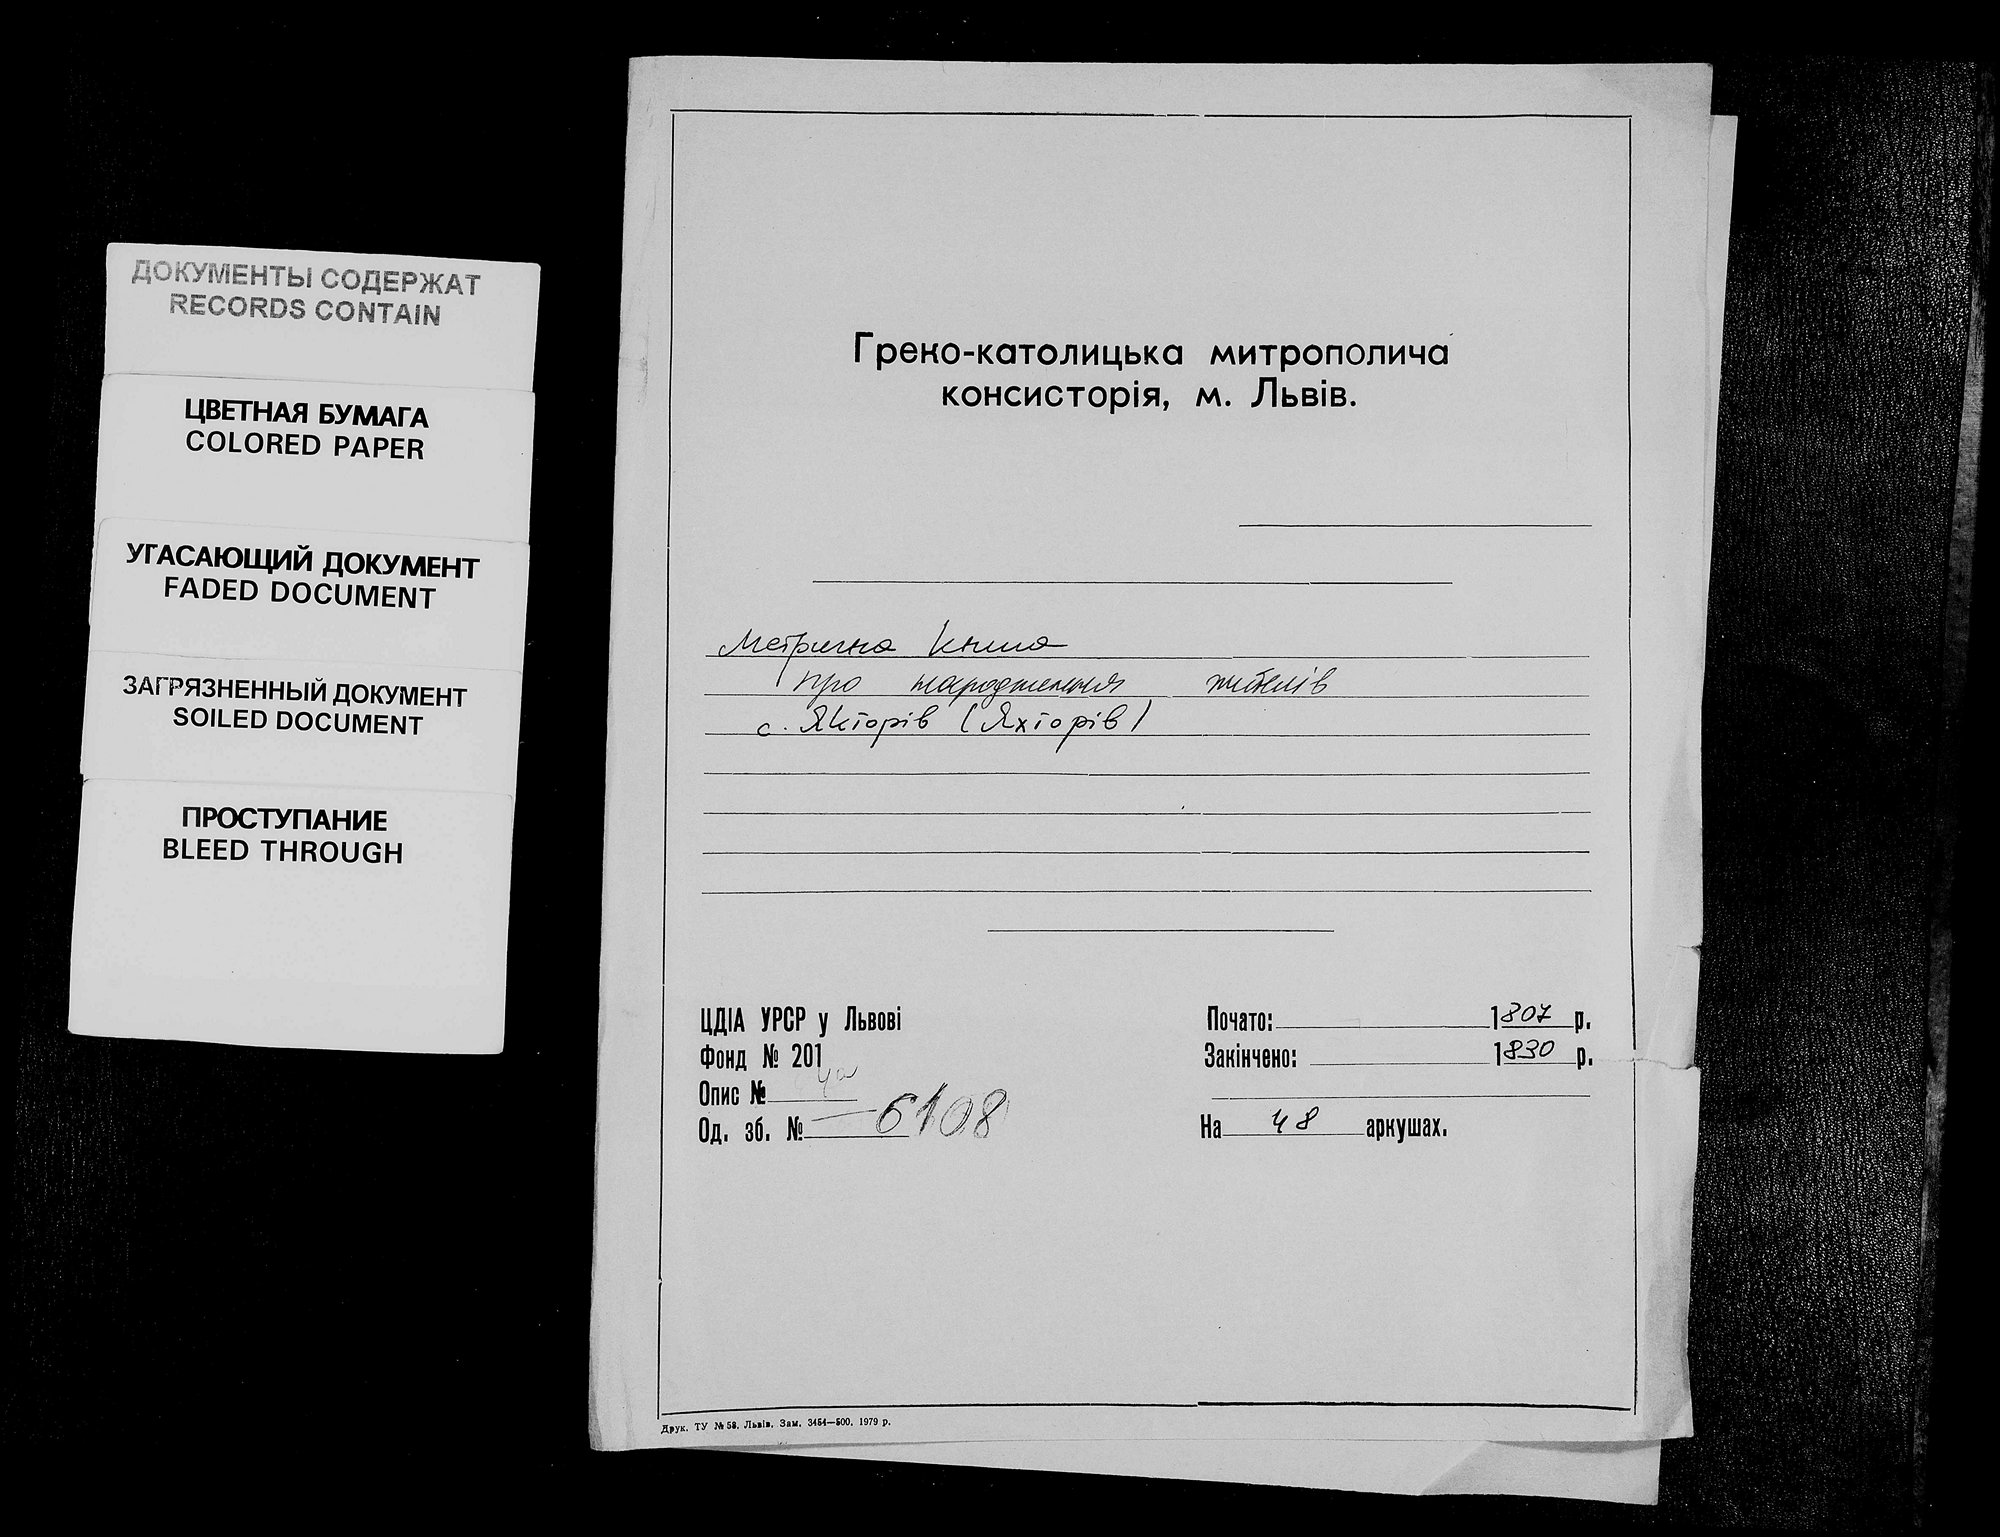 ДОКУМЕНТЫ СОДЕРЖАТ
RECORDS CONTAIN
ЦВЕТНАЯ БУМАГА
COLORED PAPER
УГАСАЮЩИЙ ДОКУМЕНТ
FADED DOCUMENT
ЗАГРЯЗНЕННЫЙ ДОКУМЕНТ
SOILED DOCUMENT
ПРОСТУПАНИЕ
BLEED THROUGH
Греко-католицька митрополича
консисторія, м. Львів.
Метрична книга
про народження жителів
с. Якторів (Яхторів)
ЦДІА УРСР у Львові
Фонд № 201
Опис № 4а
Од. зб. № 6108
Почато: 1807 р.
Закінчено: 1830 р.
На 48 аркушах.
Друк. ТУ № 58. Львів. Зам. 3454—500. 1979 р.